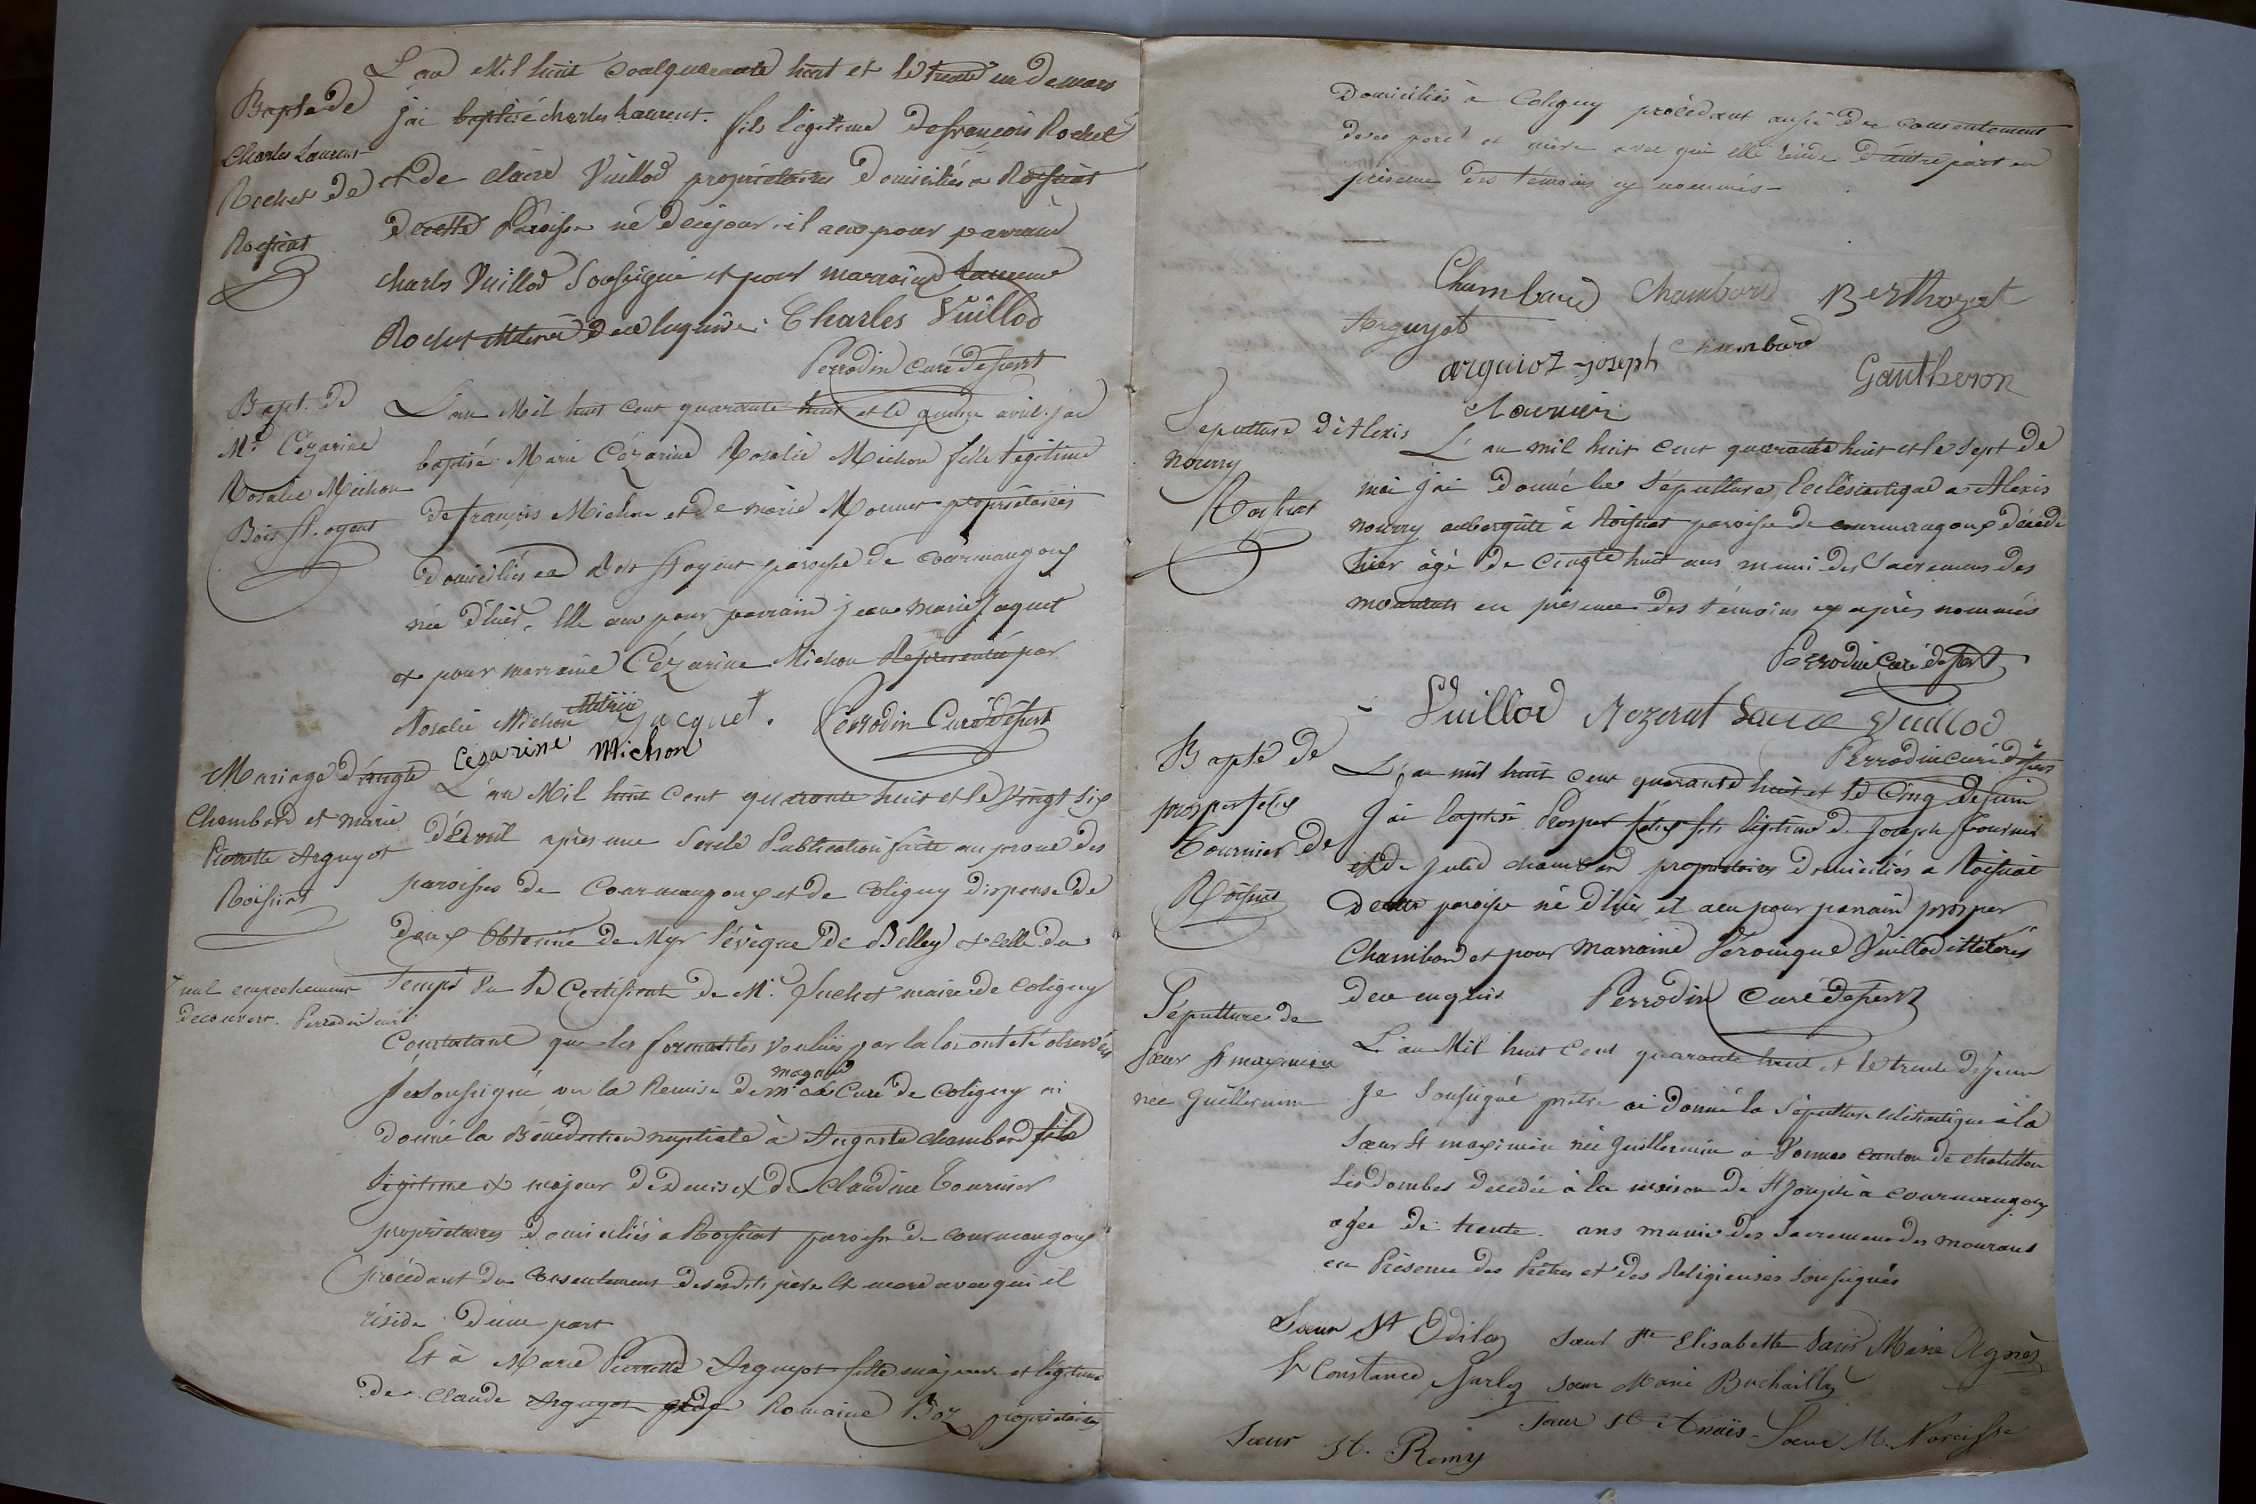 Bapte de
Charles Laurent
Rochet de
Roissiat
L'an Mil huit cent quarante huit et le trente un de mars
j'ai baptisé charles Laurent. fils légitime de françois Rochet
et de claire Vuillod propriétaires Domiciliés a Roissiat
de cette Paroisse né de ce jour. il a eu pour parrain
charles Vuillod Soussigné et pour marraine
Rochet de ce enquise. Charles Vuillod
Perrodin curé dessert
Bapt. de
Mie Cézarine
Rosalie Michon
Bois St. oyent
L'an Mil huit cent quarante huit et le quinze avril j'ai
baptisé Marie Cézarine Rosalie Michon fille légitime
de françois Michon et de marie Monnet propriétaires
domiciliés au Bois St oyent paroisse de Courmangoux
née d'hier. Elle a eu pour parrain jean marie Jaquet
et pour marraine Cézarine Michon Représentée par
Rosalie Michon illitérée Jacquet. Perrodin Curé dessert
Cézarine Michon
Mariage d'Augte
Chambard et marie
Pierrette Arguyot
Roissiat
+ nul empechement
decouvert. Perrodin curé
L'an Mil huit cent quarante huit et le vingt six
d'avril après une Seule Publication faite au prone des
paroisses de Courmangoux et de Coligny dispense de
deux Obtenue de Mgr l'évêque de Belley et celle du
Temps Vu le Certificat de Mr. Juchet maire de Coligny
Constatant que les formalités voulues par la loi ont été observées
Je Soussigné vu la Remise de mr magaud le Curé de Coligny ai
donné la Bénédiction nuptiale à Auguste chambard fils
légitime et majeur de Denis et de Claudine Tournier
propriétaires domiciliés a Roissiat paroisse de courmangoux
procédant du consentement desesdits père et mere avec qui il
réside d'une part
Et à Marie Pierrette Arguyot fille majeure et légitime
de Claude Arguyot et de Romaine Boz propriétaires
Domiciliés à Coligny procédant aussi du consentement
de ses pere et mère avec qui elle réside d'autre part en
présence des temoins cy nommés
Chambard Chambard Berthozat
Arguyot
arguiot joseph Chambard
Gautheron
Tournier
Sépulture d'Alexis
nourry
Roissiat
L'an mil huit cent quarante huit et le sept de
mai j'ai donné la Sépulture Ecclésiastique a Alexis
nourry aubergiste à Roissiat paroisse de courmangoux décédé
hier âgé de cinqte huit ans muni des Sacremens des
mourants en présence des témoins cy après nommés
Perrodin Curé dessert
Vuillod Rozerat Vuillod
Perrodin curé dessert
Bapte de
prosper felix
Tournier de
Roissiat
L'an mil huit cent quarante huit et le cinq de juin
J'ai baptisé Prosper félix fils légitime de Joseph Tournier
et de Julie chambard propriétaires domiciliés a Roissiat
de cette paroisse né d'hier, il a eu pour parrain prosper
Chambard et pour Marraine Véronique Vuillod illitérés
de ce enquis Perrodin Curé dessert
Sépulture de
Sœur St maximin
née Guillermin
L'an Mil huit Cent quarante huit et le trente de juin
Je Soussigné prêtre ai donné la Sépulture éclésiastique à la
Sœur St maximin née Guillermin a Vonnas canton de Chatillon
les Dombes decedée à la maison de St Joseph à courmangoux
agée de trente ans munie des Sacremens des mourants
en Présence des Prêtres et des Religieuses Soussignés
Sœur St Odilon Sœur Ste Elisabette Sœur Marie Agnès
Sr Constance Sœur Marie Buchailly
Sœur St Anaïs Sœur M. Narcisse
Sœur St. Remy